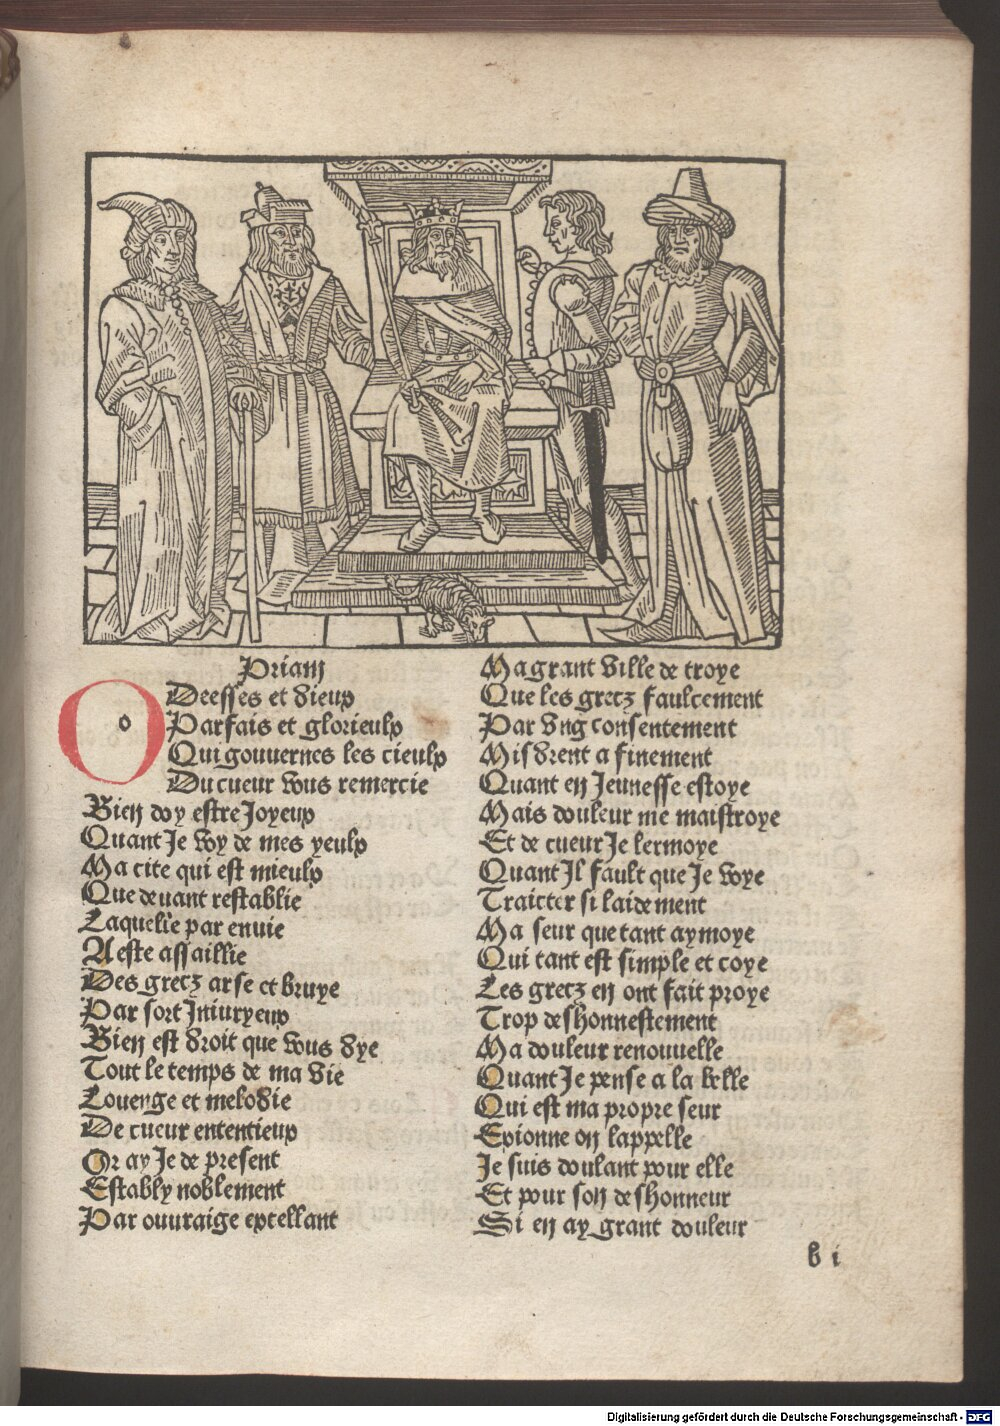 Priam
O Deesses et dieux
Parfais et glorieulx
Qui gouuernes les cieulx
Du cueur vous remercie
Bien doy estre Joyeux
Quant Je voy de mes yeulx
Ma cite qui est mieulx
Que deuant restablie
Laquelle par enuie
A este assaillie
Des grecz arse et bruye
Par sort Iniuryeux
Bien est droit que vous dye
Tout le temps de ma vie
Louenge et melodie
De cueur ententieux
Or ay Je de present
Estably noblement
Par ouuraige excellant
Ma grant ville de troye
Que les grecz faulcement
Par vng consentement
Misdrent a finement
Quant en Jeunesse estoye
Mais douleur me maistroye
Et de cueur Je lermoye
Quant Il fault que Je voye
Traicter si laidement
Ma seur que tant aymoye
Qui tant est simple et coye
Les grecz en ont fait proye
Trop deshonnestement
Ma douleur renouuelle
Quant Je pense a la belle
Qui est ma propre seur
Exionne on lappelle
Je suis doulant pour elle
Et pour son deshonneur
Si en ay grant douleur
b i
Digitalisierung gefördert durch die Deutsche Forschungsgemeinschaft - DFG